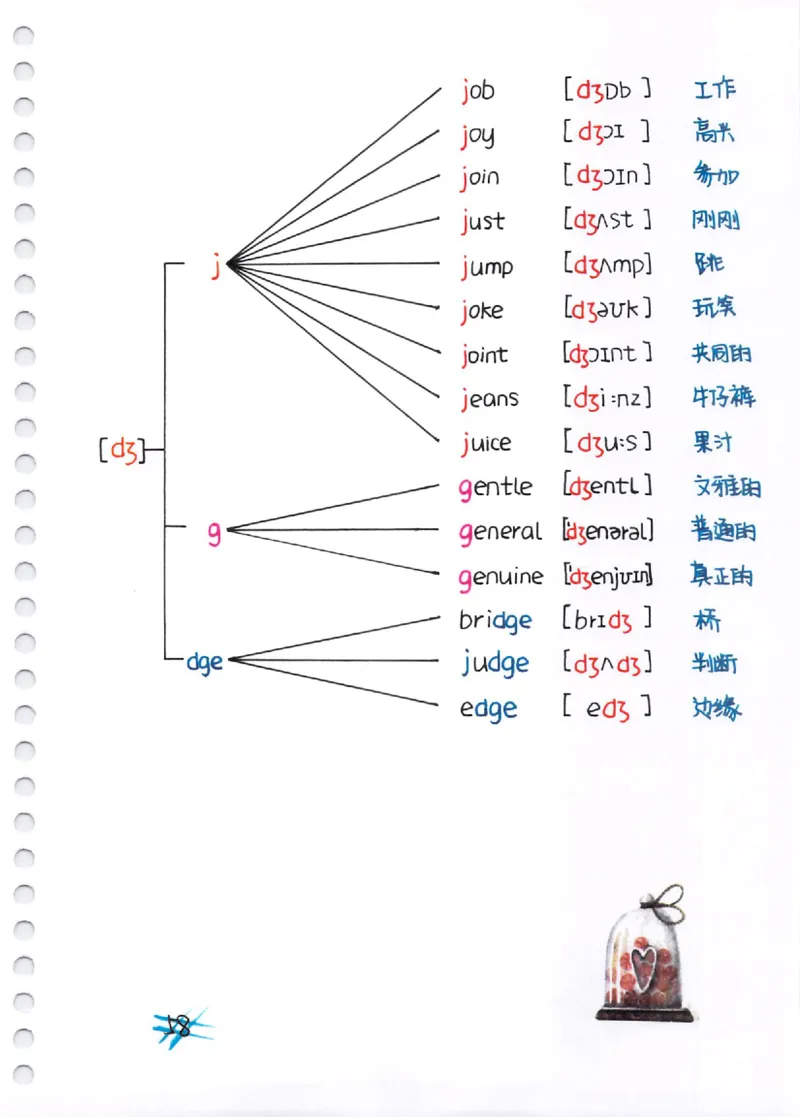 job [dʒɒb] 工作
joy [dʒɔɪ] 高兴
join [dʒɔɪn] 参加
just [dʒʌst] 刚刚
j jump [dʒʌmp] 跳
joke [dʒəʊk] 玩笑
joint [dʒɔɪnt] 共同的
jeans [dʒi:nz] 牛仔裤
[dʒ] juice [dʒu:s] 果汁
gentle [dʒentl] 文雅的
g general ['dʒenərəl] 普通的
genuine ['dʒenjʊɪn] 真正的
bridge [brɪdʒ] 桥
dge judge [dʒʌdʒ] 判断
edge [edʒ] 边缘
18